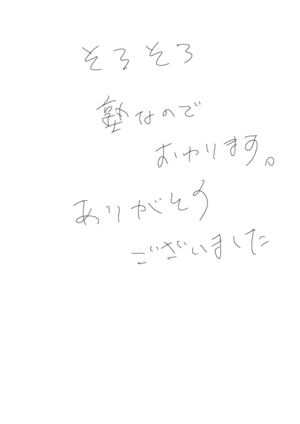 そろそろ
塾なので
おわります。
ありがとう
ございました